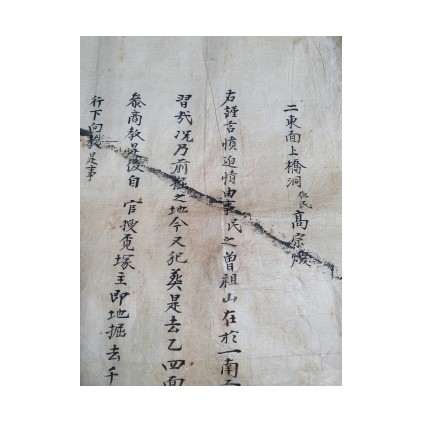 二東面上橋洞 化民 高宗煥
右謹言憤迫情由事民之曾祖山在於一南面
習哉况乃前猛之地今又犯葬是去乙四面
叅商教是後自 官搜覔塚主即地掘去千
行下向敎是事